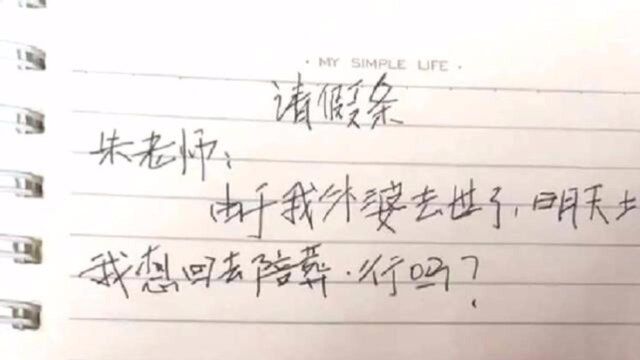 · MY SIMPLE LIFE ·
请假条
朱老师:
由于我外婆去世了,明天上
我想回去陪葬.行吗?